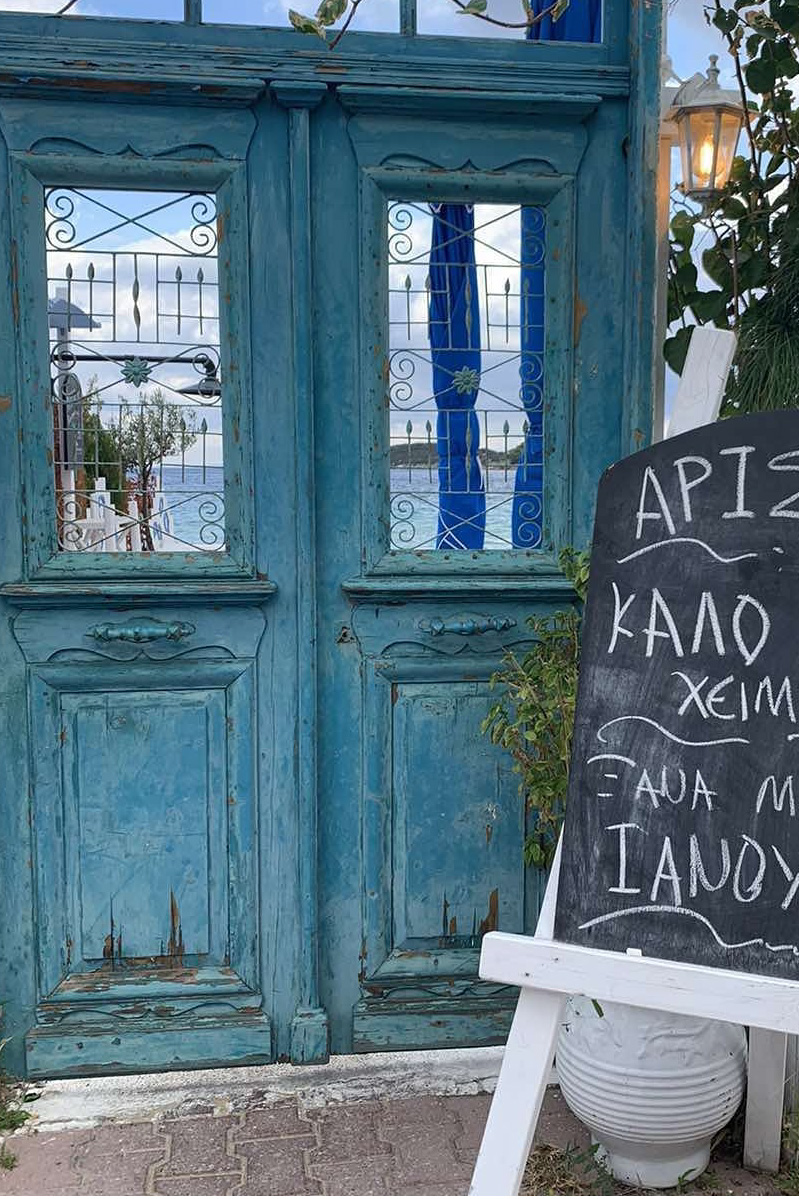 ΑΡΙΣ
ΚΑΛΟ
ΧΕΙΜ
ΞΑΝΑ Μ
ΙΑΝΟΥ